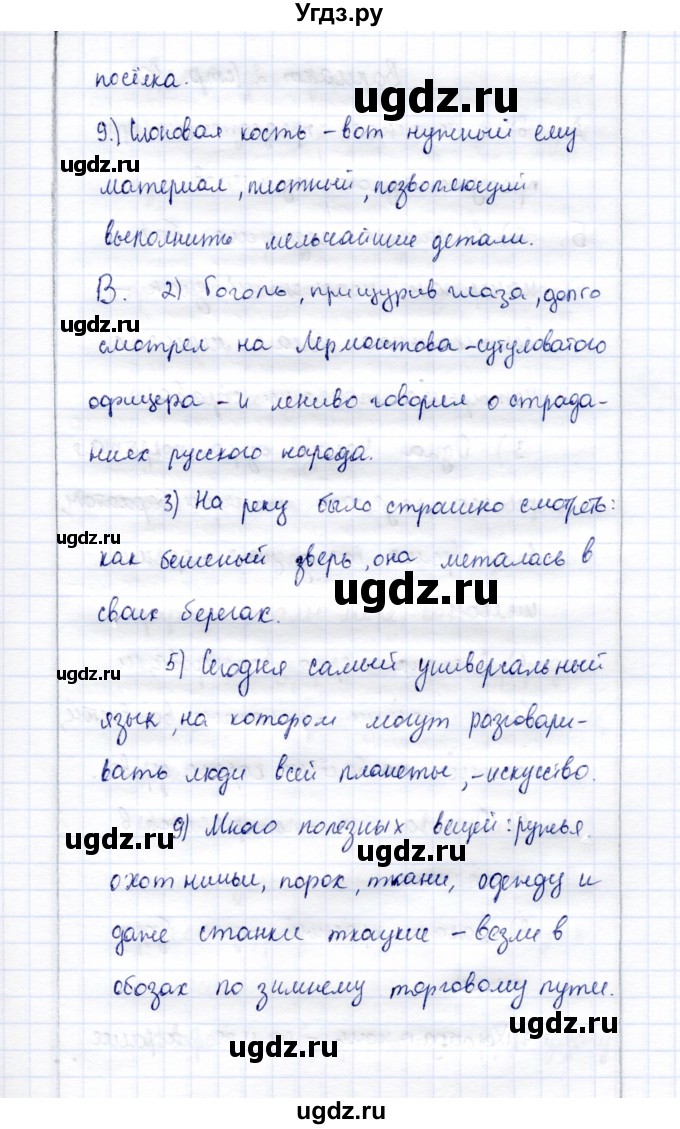 Угдз.ру
посёлка.
ugdz.ru
9.) Слоновая кость – вот нужный ему
ugdz.ru
материал, плотный, позволяющий
выполнить мельчайшие детали.
В. 2) Гоголь, прищурив глаза, долго
ugdz.ru
ugdz.ru
смотрел на Лермонтова – сутуловатого
офицера – и лениво говорил о страда-
ниях русского народа.
3) На реку было страшно смотреть:
ugdz.ru
как бешеный зверь, она металась в
ugdz.ru
своих берегах.
5) Сегодня самый универсальный
ugdz.ru
язык, на котором могут разговари-
вать люди всей планеты, – искусство.
9) Много полезных вещей: ружья
ugdz.ru
ugdz.ru
охотничьи, порох, ткани, одежду и
даже станки ткацкие – везли в
обозах по зимнему торговому пути.
ugdz.ru
ugdz.ru
ugdz.ru